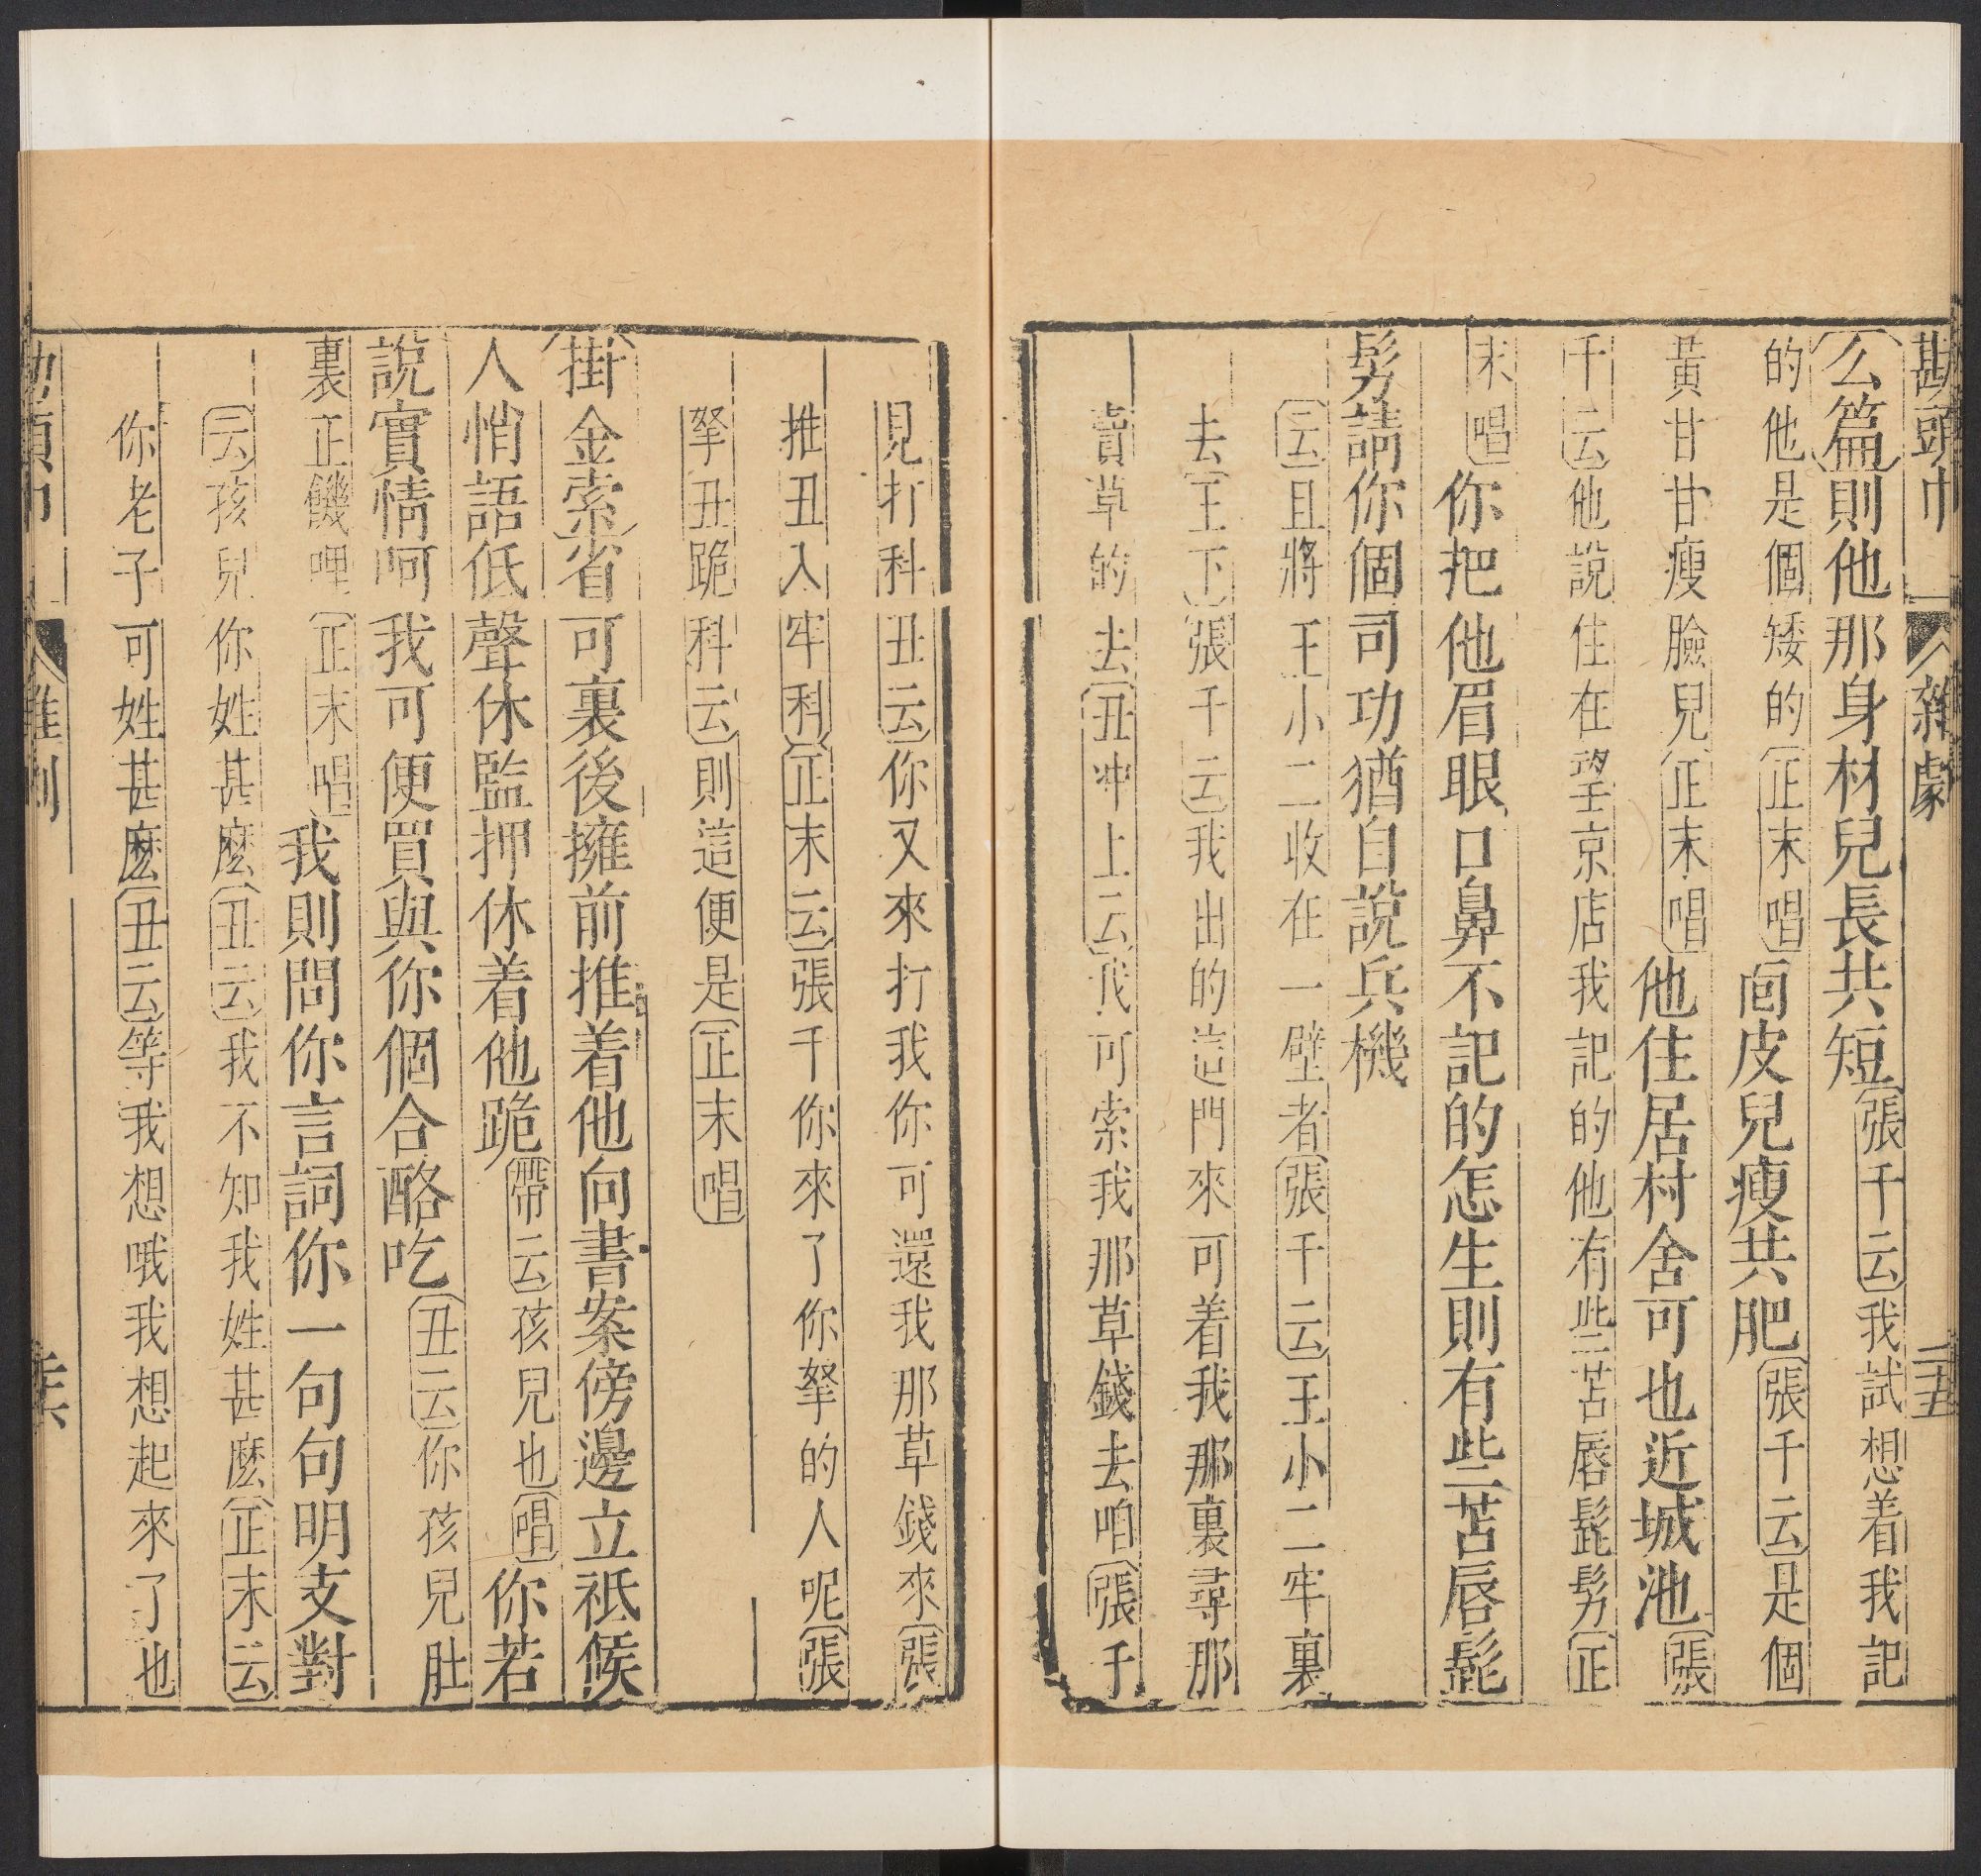 勘頭巾 雜劇 二十五
么篇則他那身材兒長共短張千云我試想着我記
的他是個矮的正末唱面皮兒瘦共肥張千云是個
黃甘甘瘦臉兒正末唱他住居村舍可也近城池張
千云他說住在望京店我記的他有些苫唇髭髣正
末唱你把他眉眼口鼻不記的怎生則有些苫唇髭
髣請你個司功猶自說兵機
云且將王小二收在一壁者張千云王小二牢裏
去王下張千云我出的這門來可着我那裏尋那
賣草的去丑冲上云我可索我那草錢去咱張千
見打科丑云你又來打我你可還我那草錢來張
推丑入牢科正末云張千你來了你拏的人呢張
拏丑跪科云則這便是正末唱
掛金索省可裏後擁前推着他向書案傍邊立祗候
人悄語低聲休監押休着他跪帶云孩兒也唱你若
說實情呵我可便買與你個合酪吃丑云你孩兒肚
裏正饑哩正末唱我則問你言詞你一句句明支對
云孩兒你姓甚麽丑云我不知我姓甚麽正末云
你老子可姓甚麽丑云等我想哦我想起來了也